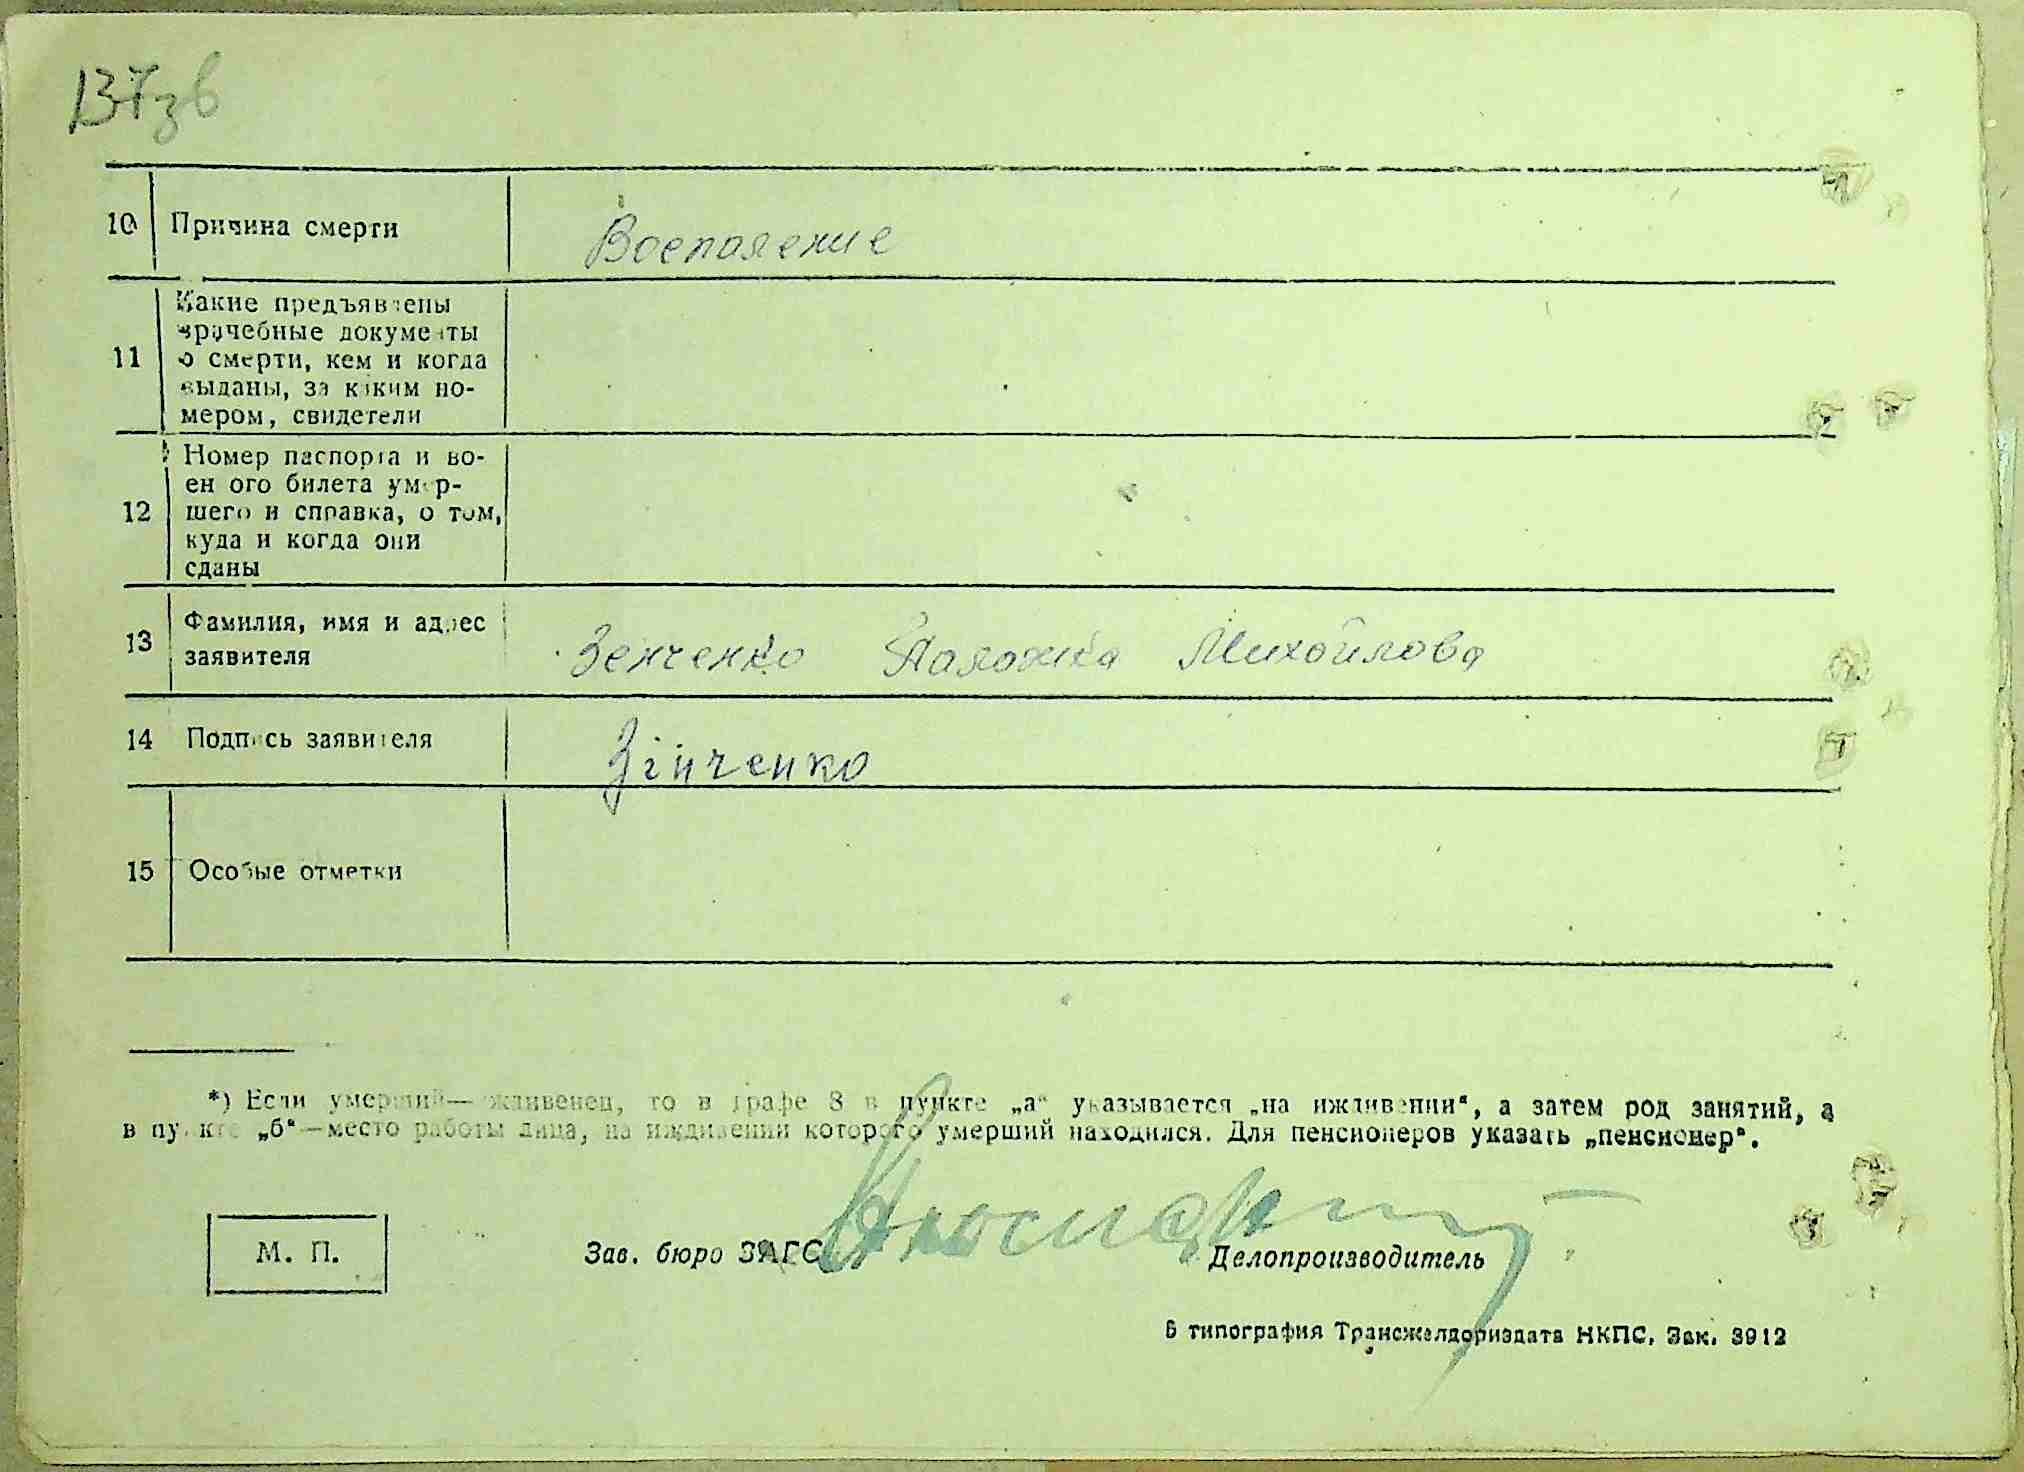 137зв
10 Причина смерти Воспаление
11 Какие предъявлены
врачебные документы
о смерти, кем и когда
выданы, за каким но-
мером, свидетели
12 Номер паспорта и во-
енного билета умер-
шего и справка, о том,
куда и когда они
сданы
13 Фамилия, имя и адрес
заявителя Зенченко Палошка Михойлова
14 Подпись заявителя Зінченко
15 Особые отметки
*) Если умерший—иждивенец, то в графе 8 в пункте „а“ указывается „на иждивении“, а затем род занятий, а
в пункте „б“—место работы лица, на иждивении которого умерший находился. Для пенсионеров указать „пенсионер“.
М. П. Зав. бюро ЗАГС Делопроизводитель
6 типография Трансжелдориздата НКПС, Зак. 3912